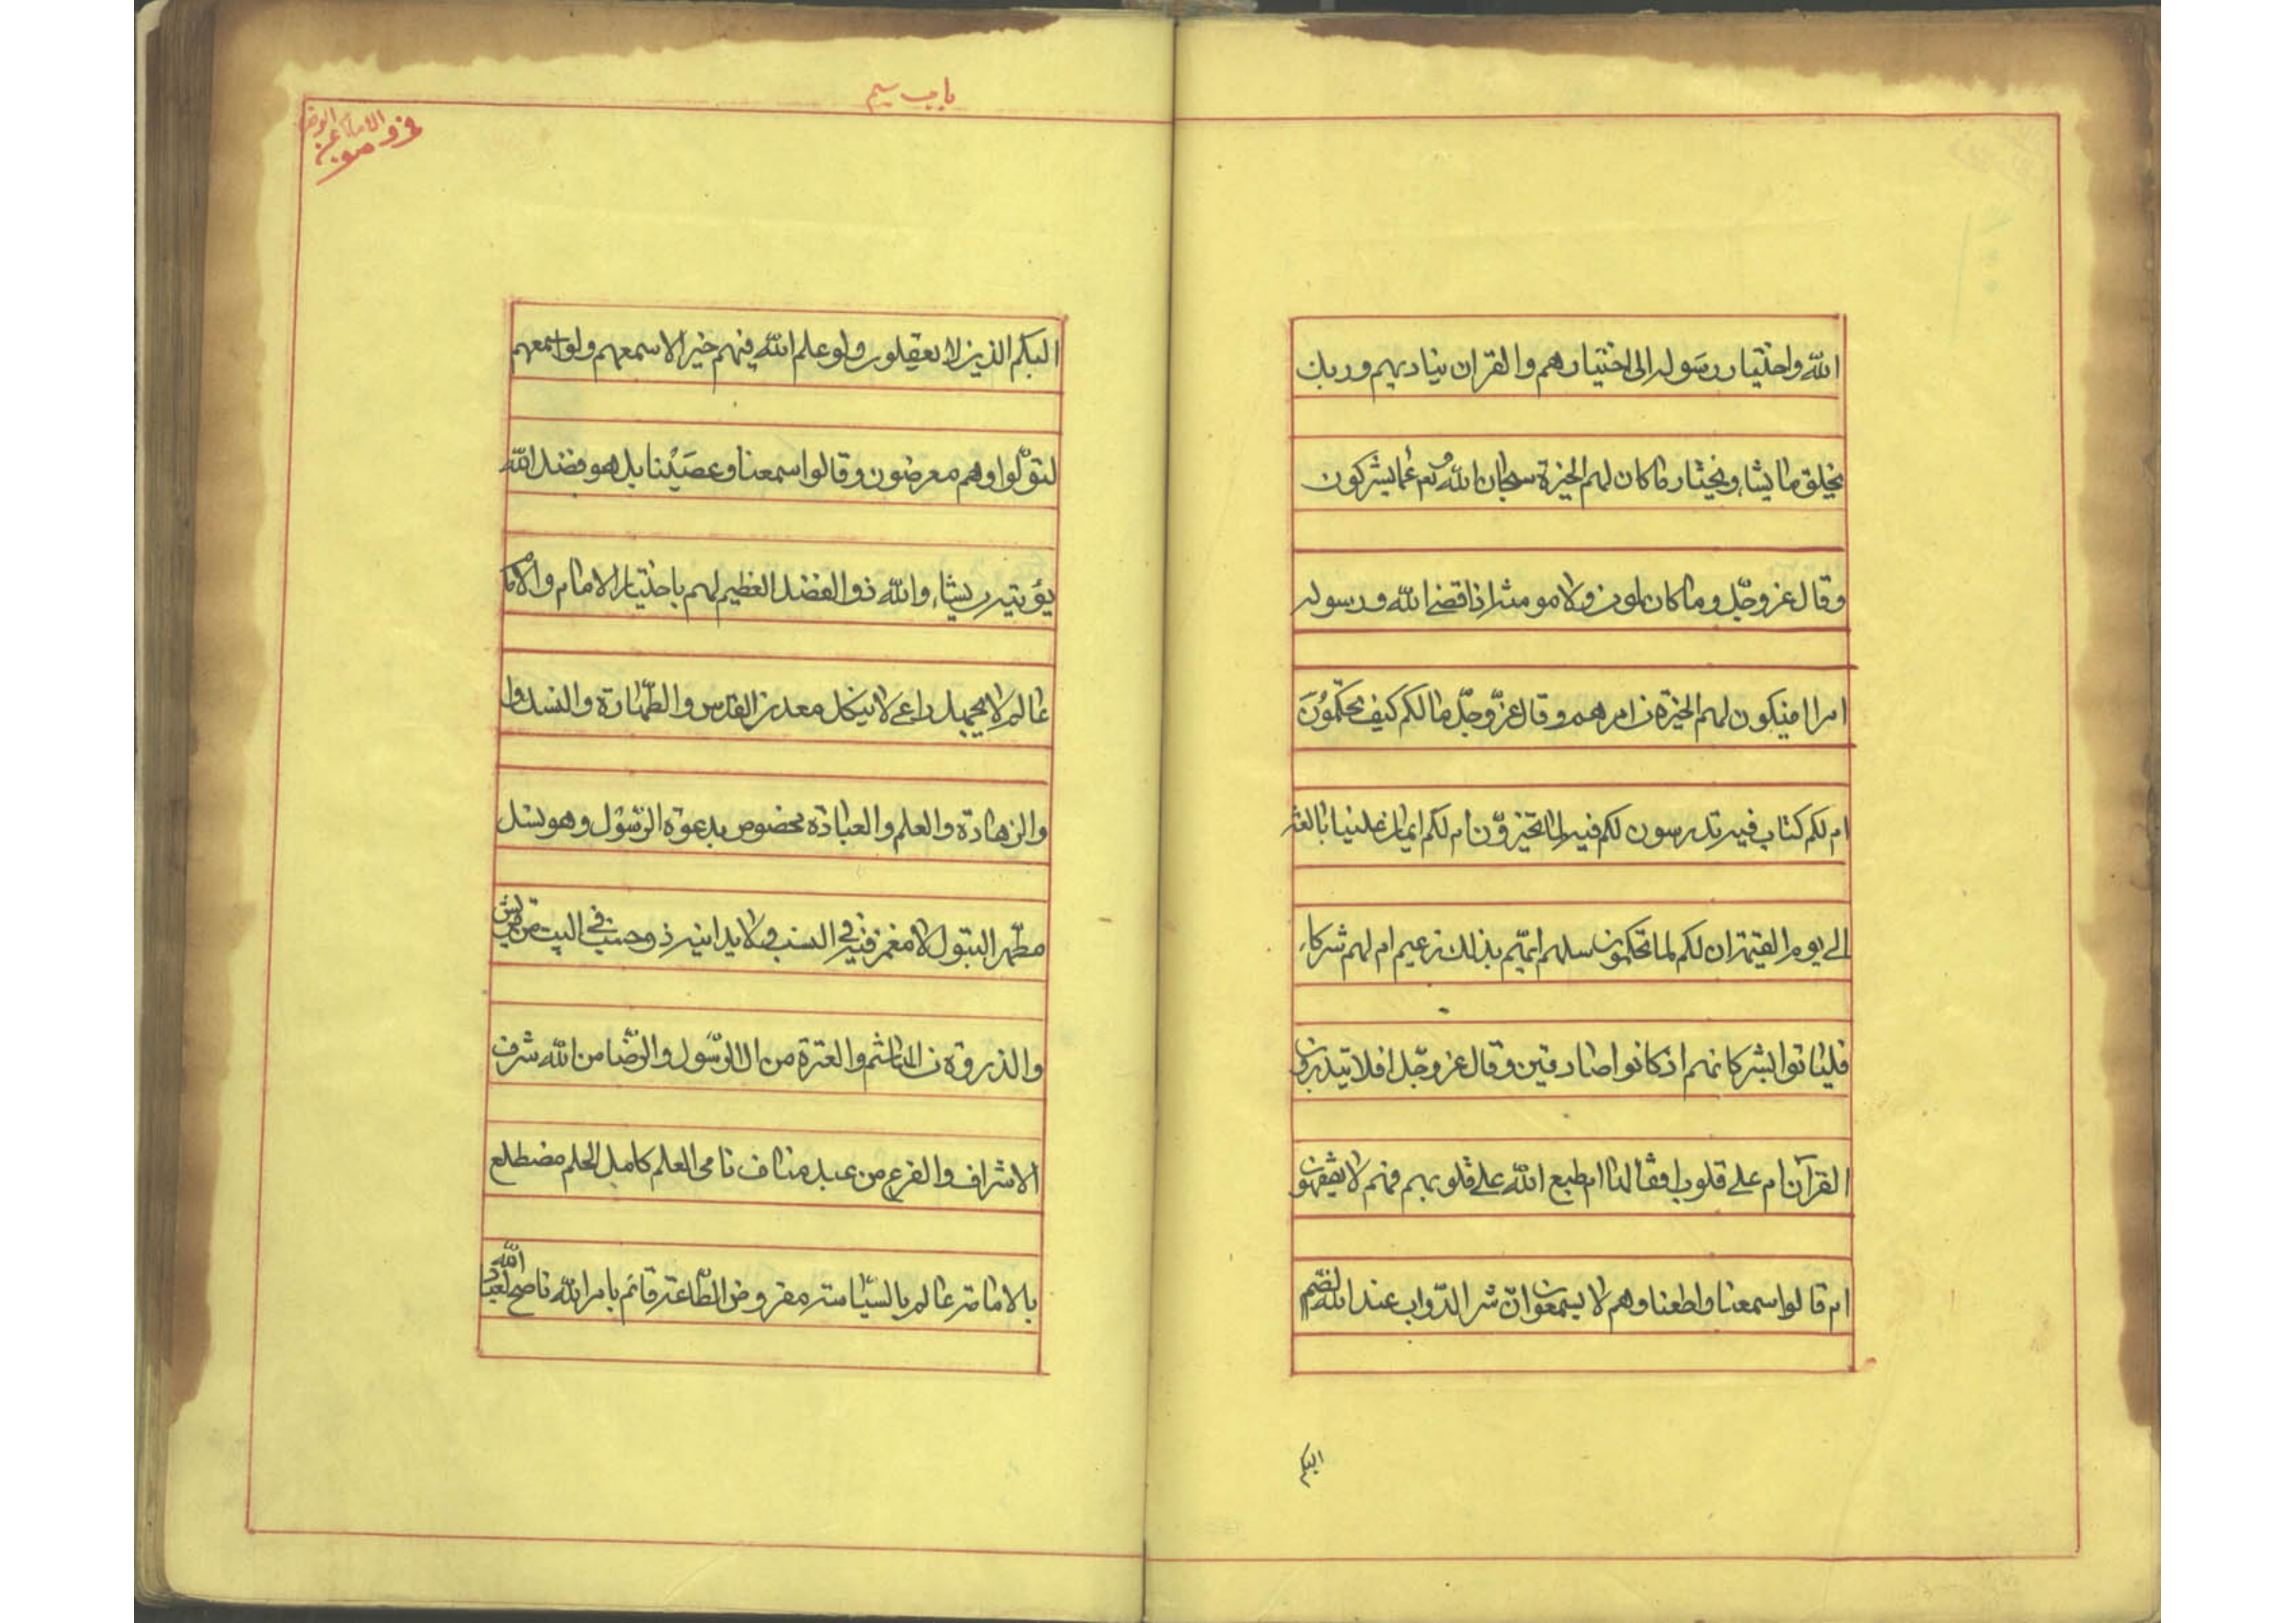 الله واختيار رسوله الى اختيارهم والقران يناديهم وربك
يخلق ما يشاء ويختار ما كان لهم الخيرة سبحان الله وتع عما يشركون
وقال عز وجل وما كان لمومن ولا مومنة اذا قضى الله ورسوله
امرا ان يكون لهم الخيرة من امرهم وقال عز وجل ما لكم كيف تحكمون
ام لكم كتاب فيه تدرسون لكم فيه لما تخيرون ام لكم ايمان علينا بالغة
الى يوم القيمة ان لكم لما تحكمون سلهم ايهم بذلك زعيم ام لهم شركاء
فلياتوا بشركائهم ان كانوا صادقين وقال عز وجل افلا يتدبرون
القرآن ام على قلوب اقفالها ام طبع الله على قلوبهم فهم لا يفقهون
ام قالوا سمعنا واطعنا وهم لا يسمعون ان شر الدواب عند الله الصم
البكم
باب سيم
البكم الذين لا يعقلون ولو علم الله فيهم خيرا لاسمعهم ولو اسمعهم
لتولوا وهم معرضون وقالوا سمعنا وعصينا بل هو فضل الله
يؤتيه من يشاء والله ذو الفضل العظيم لهم باختيار الامام والامام
عالم لا يجهل راعي لا ينكل معدن القدس والطهارة والنسك
والزهادة والعلم والعبادة مخصوص بدعوة الرسول وهو نسل
مطهر البتول لا مغمز فيه في النسب ولا يدانيه ذو حسب في البيت من قريش
والذروة من الهاشم والعترة من ال الرسول والرضا من الله شرف
الاشراف والفرع من عبد مناف نامى العلم كامل الحلم مضطلع
بالامامة عالم بالسياسة مفروض الطاعة قائم بامر الله ناصح لعباد الله